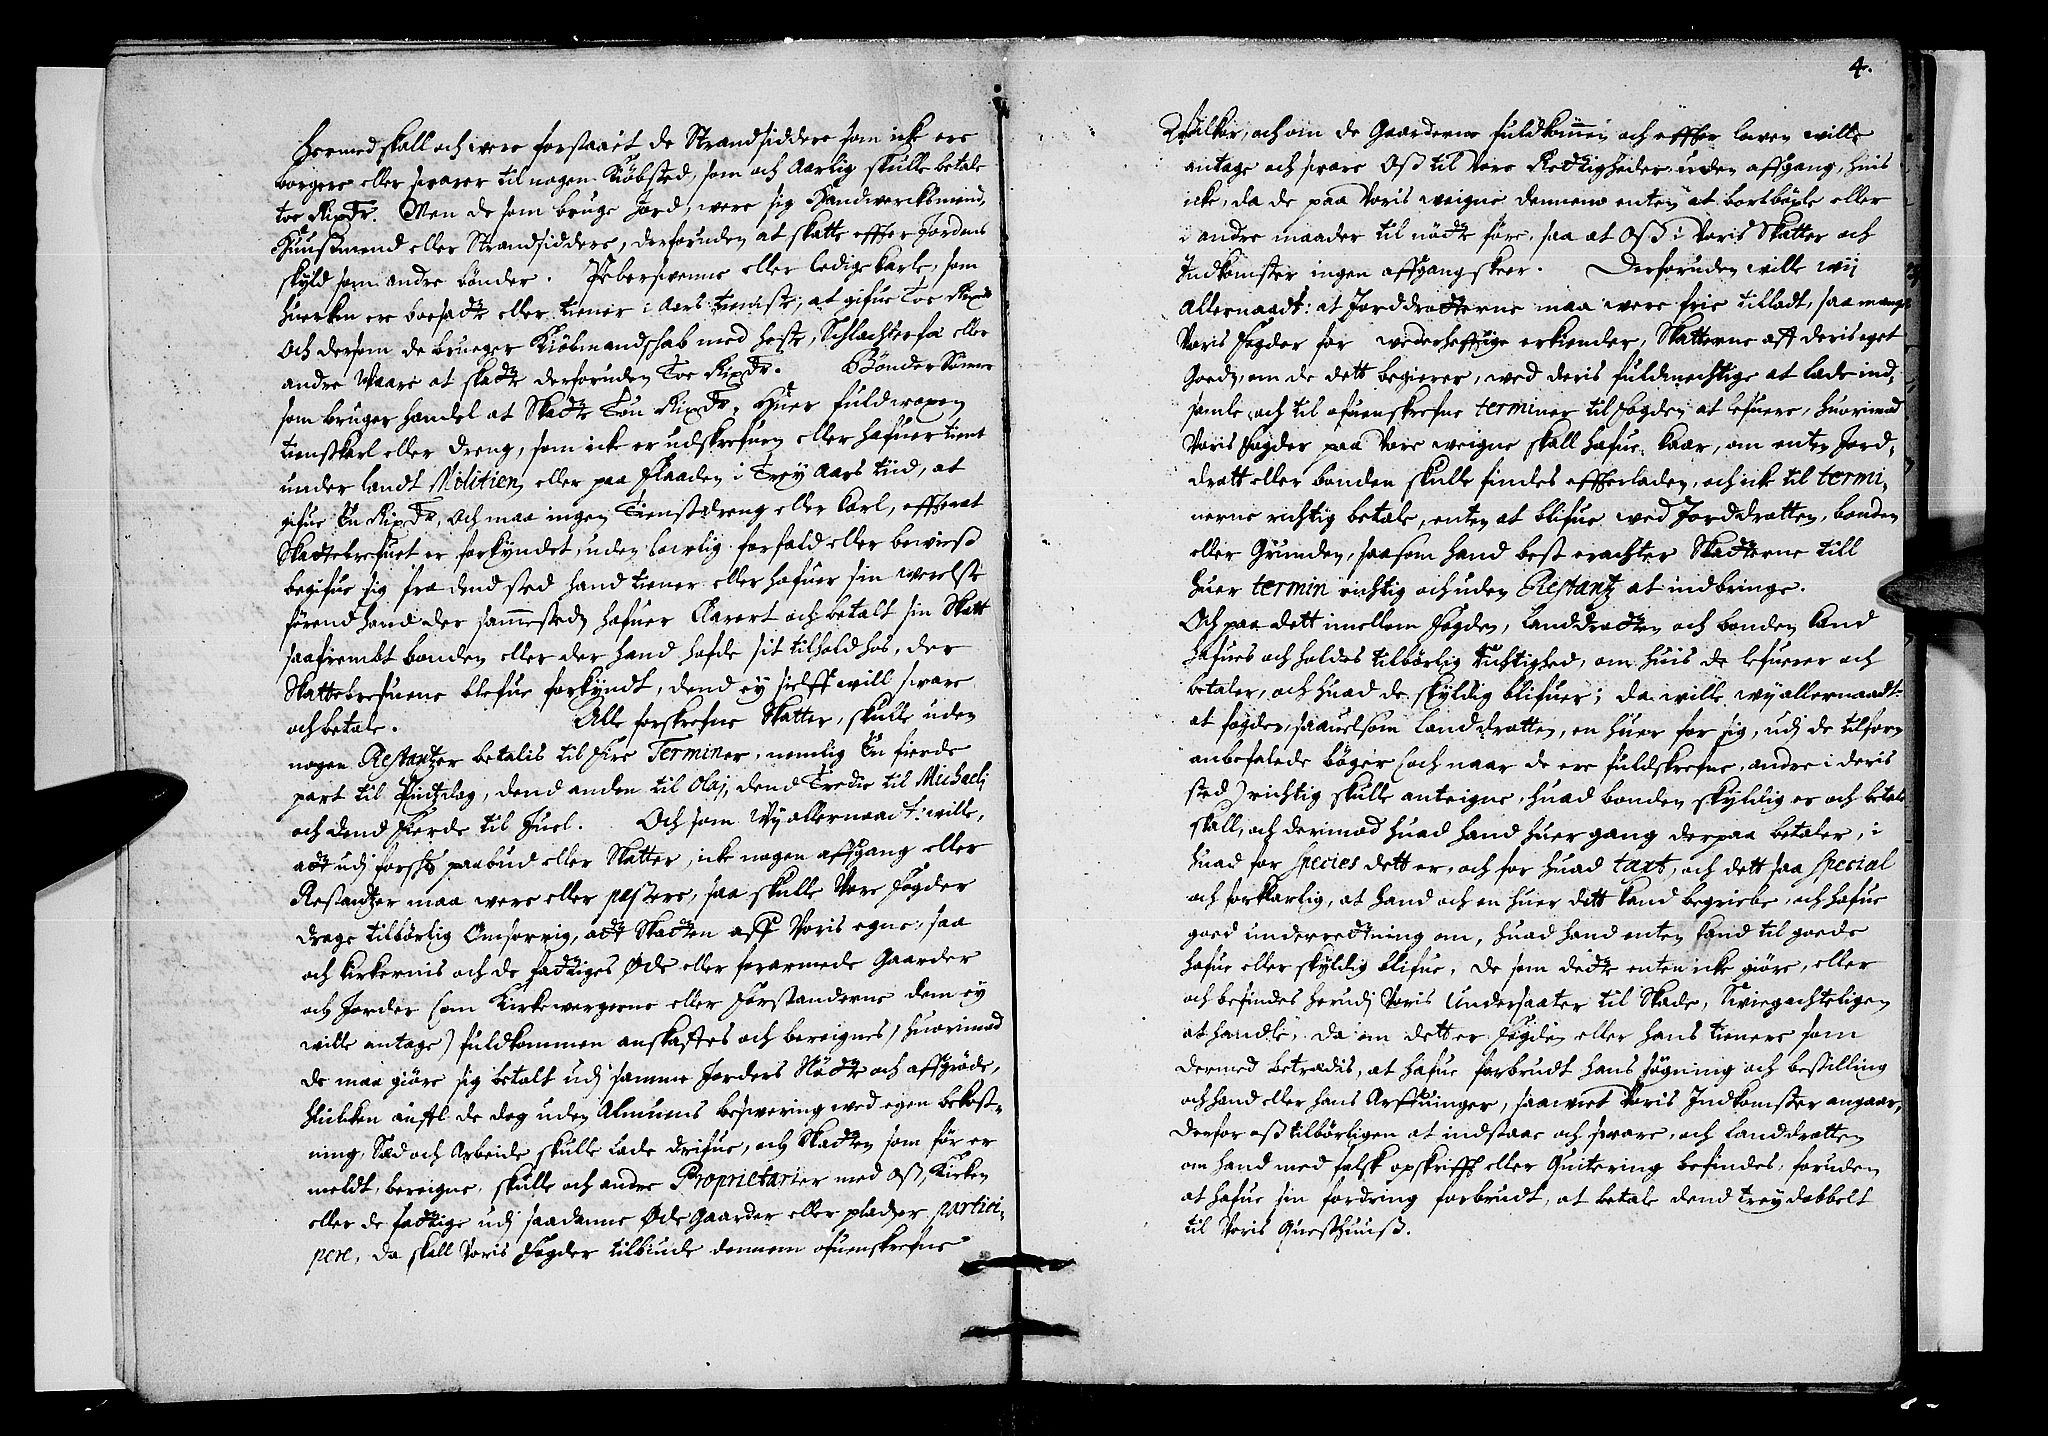 Hermed skall och were forstaaet de Strandsiddere som icke ere
borgere eller svarer til nogen Kiøbsted, som och Aarlig skulle betale
toe Rixdr. Men de som bruge Jord, were sig Handwercksmend,
Huusmend eller Strandsiddere, derforuden at skatte effter Jordens
skyld som andre bønder. Pebersvenne eller ledige karle, som
huercken ere boesadte eller tiener i Aars tieniste, at gifue Toe Rixdr
Och dersom de brueger Kiøbmandschab med heste, Schlachterfæ eller
andre Waare at skadte derforuden Toe Rixdr. Bønder Sønner
som bruger handel at Skadte Een Rixdr, Huer fuldvoxen
tienistkarl eller dreng, som icke er udskrefuen eller hafuer tient
under landt Militien eller paa Flaaden i Trey Aars tiid, at
gifue En Rixdr, och maa ingen Tienistdreng eller karl, effterat
Skattebrefuet er forkyndet, uden lovlig forfald eller beviess
begifue sig fra dend sted hand tiener eller hafuer sin werelse
førend hand der sammesteds hafuer Clarert och betalt sin Skatt
saafrembt bonden eller der hand hafde sit tilhold hos, der
Skattebrefuene blefue forkyndt, dend ey sielff will svare
och betale. Alle forskrefne Skatter, skulle uden
nogen Restantzer betalis til Fire Terminer, nemlig En fierde
part til Pintzdag, dend anden til Olaj, dend Tredie til Michaeli
och dend Fierde til Juel. Och som Wy allernaadt: wille,
adt udj forschr paabud eller Skatter, icke nogen affgang eller
Restantzer maa were eller passere, saa skulle Vore Fogder
drage tilbørlig Omsorrig, adt Skadten aff Voris egne, saa
och kirkernis och de fadtiges Øde eller forarmede Gaarder
och Jorder (om Kirkewergerne eller Forstanderne dem ey
wille antage) fuldkommen anskaffes och bereignes, huorimod
de maa giøre sig betalt udj samme Jorders Nødte och affgrøde,
Huilcken aufl de dog uden Almuens beswering med egen bekost-
ning, Sæd och Arbeide skulle lade drifue, och Skadten som før er
meldt, bereigne, skulle och andre Proprietarier med Oss, Kirken
eller de fadtige udj saadanne Øde Gaarder eller pladzer partici-
pere, da skall Voris Fogder tilbiude dennem ofuenskrefne
4.
Vilkor, och om de Gaarderne fuldkommen och effter lowen wille
antage och svare Oss til Vore Rettigheder uden affgang, huis
icke, da de paa Voris weigne dennem enten at bortbøxle eller
i andre maader til nødte føre, saa at Oss i Voris Skatter och
Indkomster ingen affgang skeer. Derforuden wille wij
Allernaadt: at Jorddrotterne maa were frie tilladt, saa mange
Voris Fogder for wederhefftige erkiender, Skatterne aff deris eget
Goeds, om de dett begierer, wed deris fuldmechtige at lade ind-
samle, och til ofuenskrefne terminer til Fogden at lefuere, huorimod
Voris Fogder paa Vore weigne skall hafue kaar, om enten Jord-
drott eller bonden skulle findes effterladen, och icke til termi-
nerne richtig betale, enten at blifue wed Jorddrotten, bonden
eller Grunden, saasom hand best erachter Skadterne till
huer termin richtig och uden Restantz at indbringe.
Och paa dett imellem Fogden, Landdrotten och bonden kand
hafues och holdes tilbørlig richtighed, om huis de lefuerer och
betaler, och huad de skyldig blifuer; da wille wy allernaadt:
at fogden, saauelsom Landdrotten, en huer for sig, udj de tilforn
anbefalede bøger (och naar de ere fuldskrefne, andre i deris
sted) richtig skulle anteigne, huad bonden skyldig er och betale
skall, och derimod huad hand huer gang derpaa betaler, i
huad for Species dett er, och for huad taxt, och dett saa special
och forklarlig, at hand och en huer dett kand begriebe, och hafue
goed underretning om, huad hand enten kand til goede
hafue eller skyldig blifue, de som dette enten icke giøre, eller
och befindes herudj Voris Undersaatter til Skade, Sviegachteligen
at handle, da om dett er Fogden eller hans tienere som
dermed betrædis, at hafue forbrudt hans søgning och bestilling
och hand eller hans Arffuinger, saawiet Voris Indkomster angaar,
derfor oss tilbørligen at indstaae och svare, och Landdrotten
om hand med falsk opskrifft eller Quitering befindes, foruden
at hafue sin fordring forbrudt, at betale dend trey dobbelt
til Voris Questhuuss.